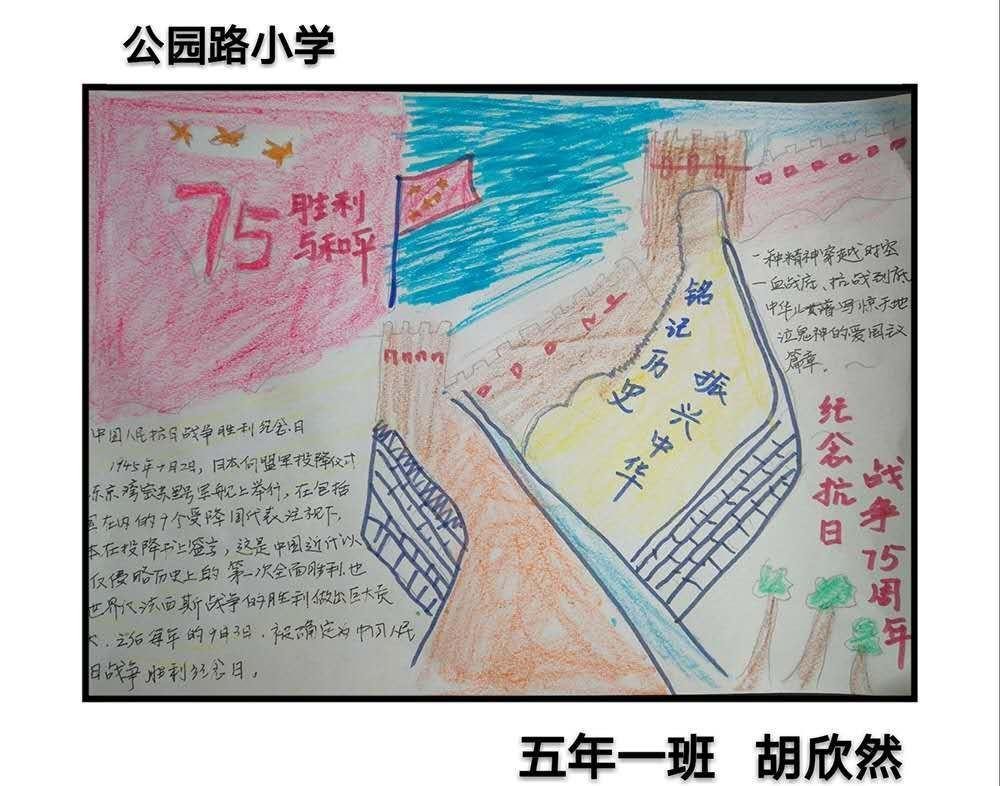 公园路小学
75
胜利
与和平
铭记历史
振兴中华
一种精神穿越时空
一血战底、抗战到底
中华儿女谱写惊天地
泣鬼神的爱国
篇章。
纪念抗日
战争75周年
中国人民抗日战争胜利纪念日
1945年9月2日，日本向盟军投降仪式
东京湾密苏里号军舰上举行，在包括
国在内的9个受降国代表注视下，
本在投降书上签字，这是中国近代以
反侵略历史上的第一次全面胜利.也
世界反法西斯战争的胜利做出巨大贡
之后每年的9月3日，被确定为中国人民
日战争胜利纪念日。
五年一班 胡欣然